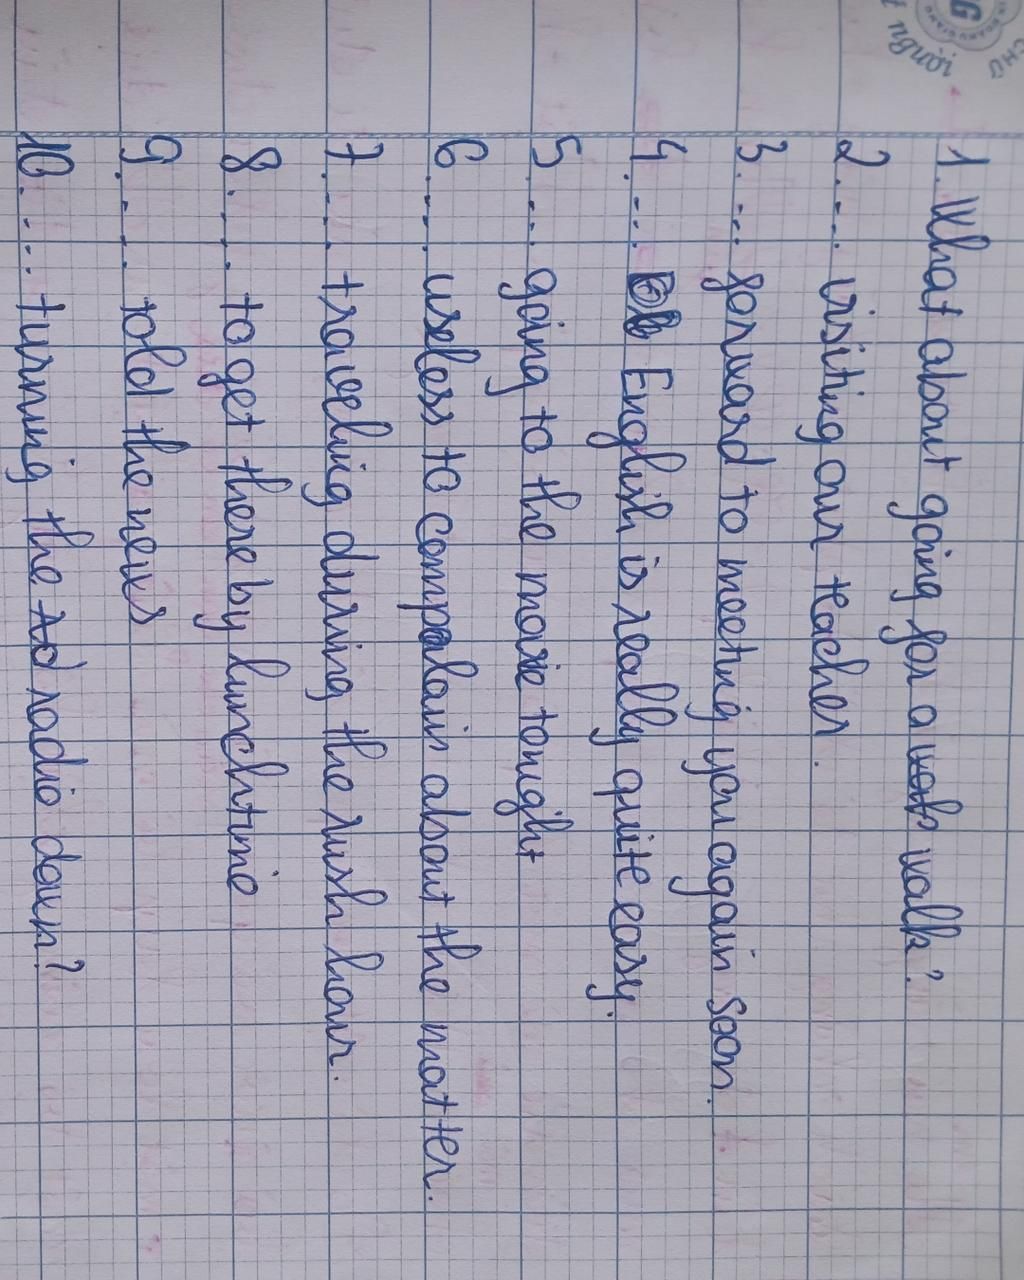 1. What about going for a walk?
2.... visiting our teacher.
3.... forward to meeting you again soon.
4.... English is really quite easy.
5.... going to the movie tonight
6..... useless to complain about the matter.
7..... traveling during the rush hour.
8..... to get there by lunchtime
9..... told the news
10..... turning the radio down?